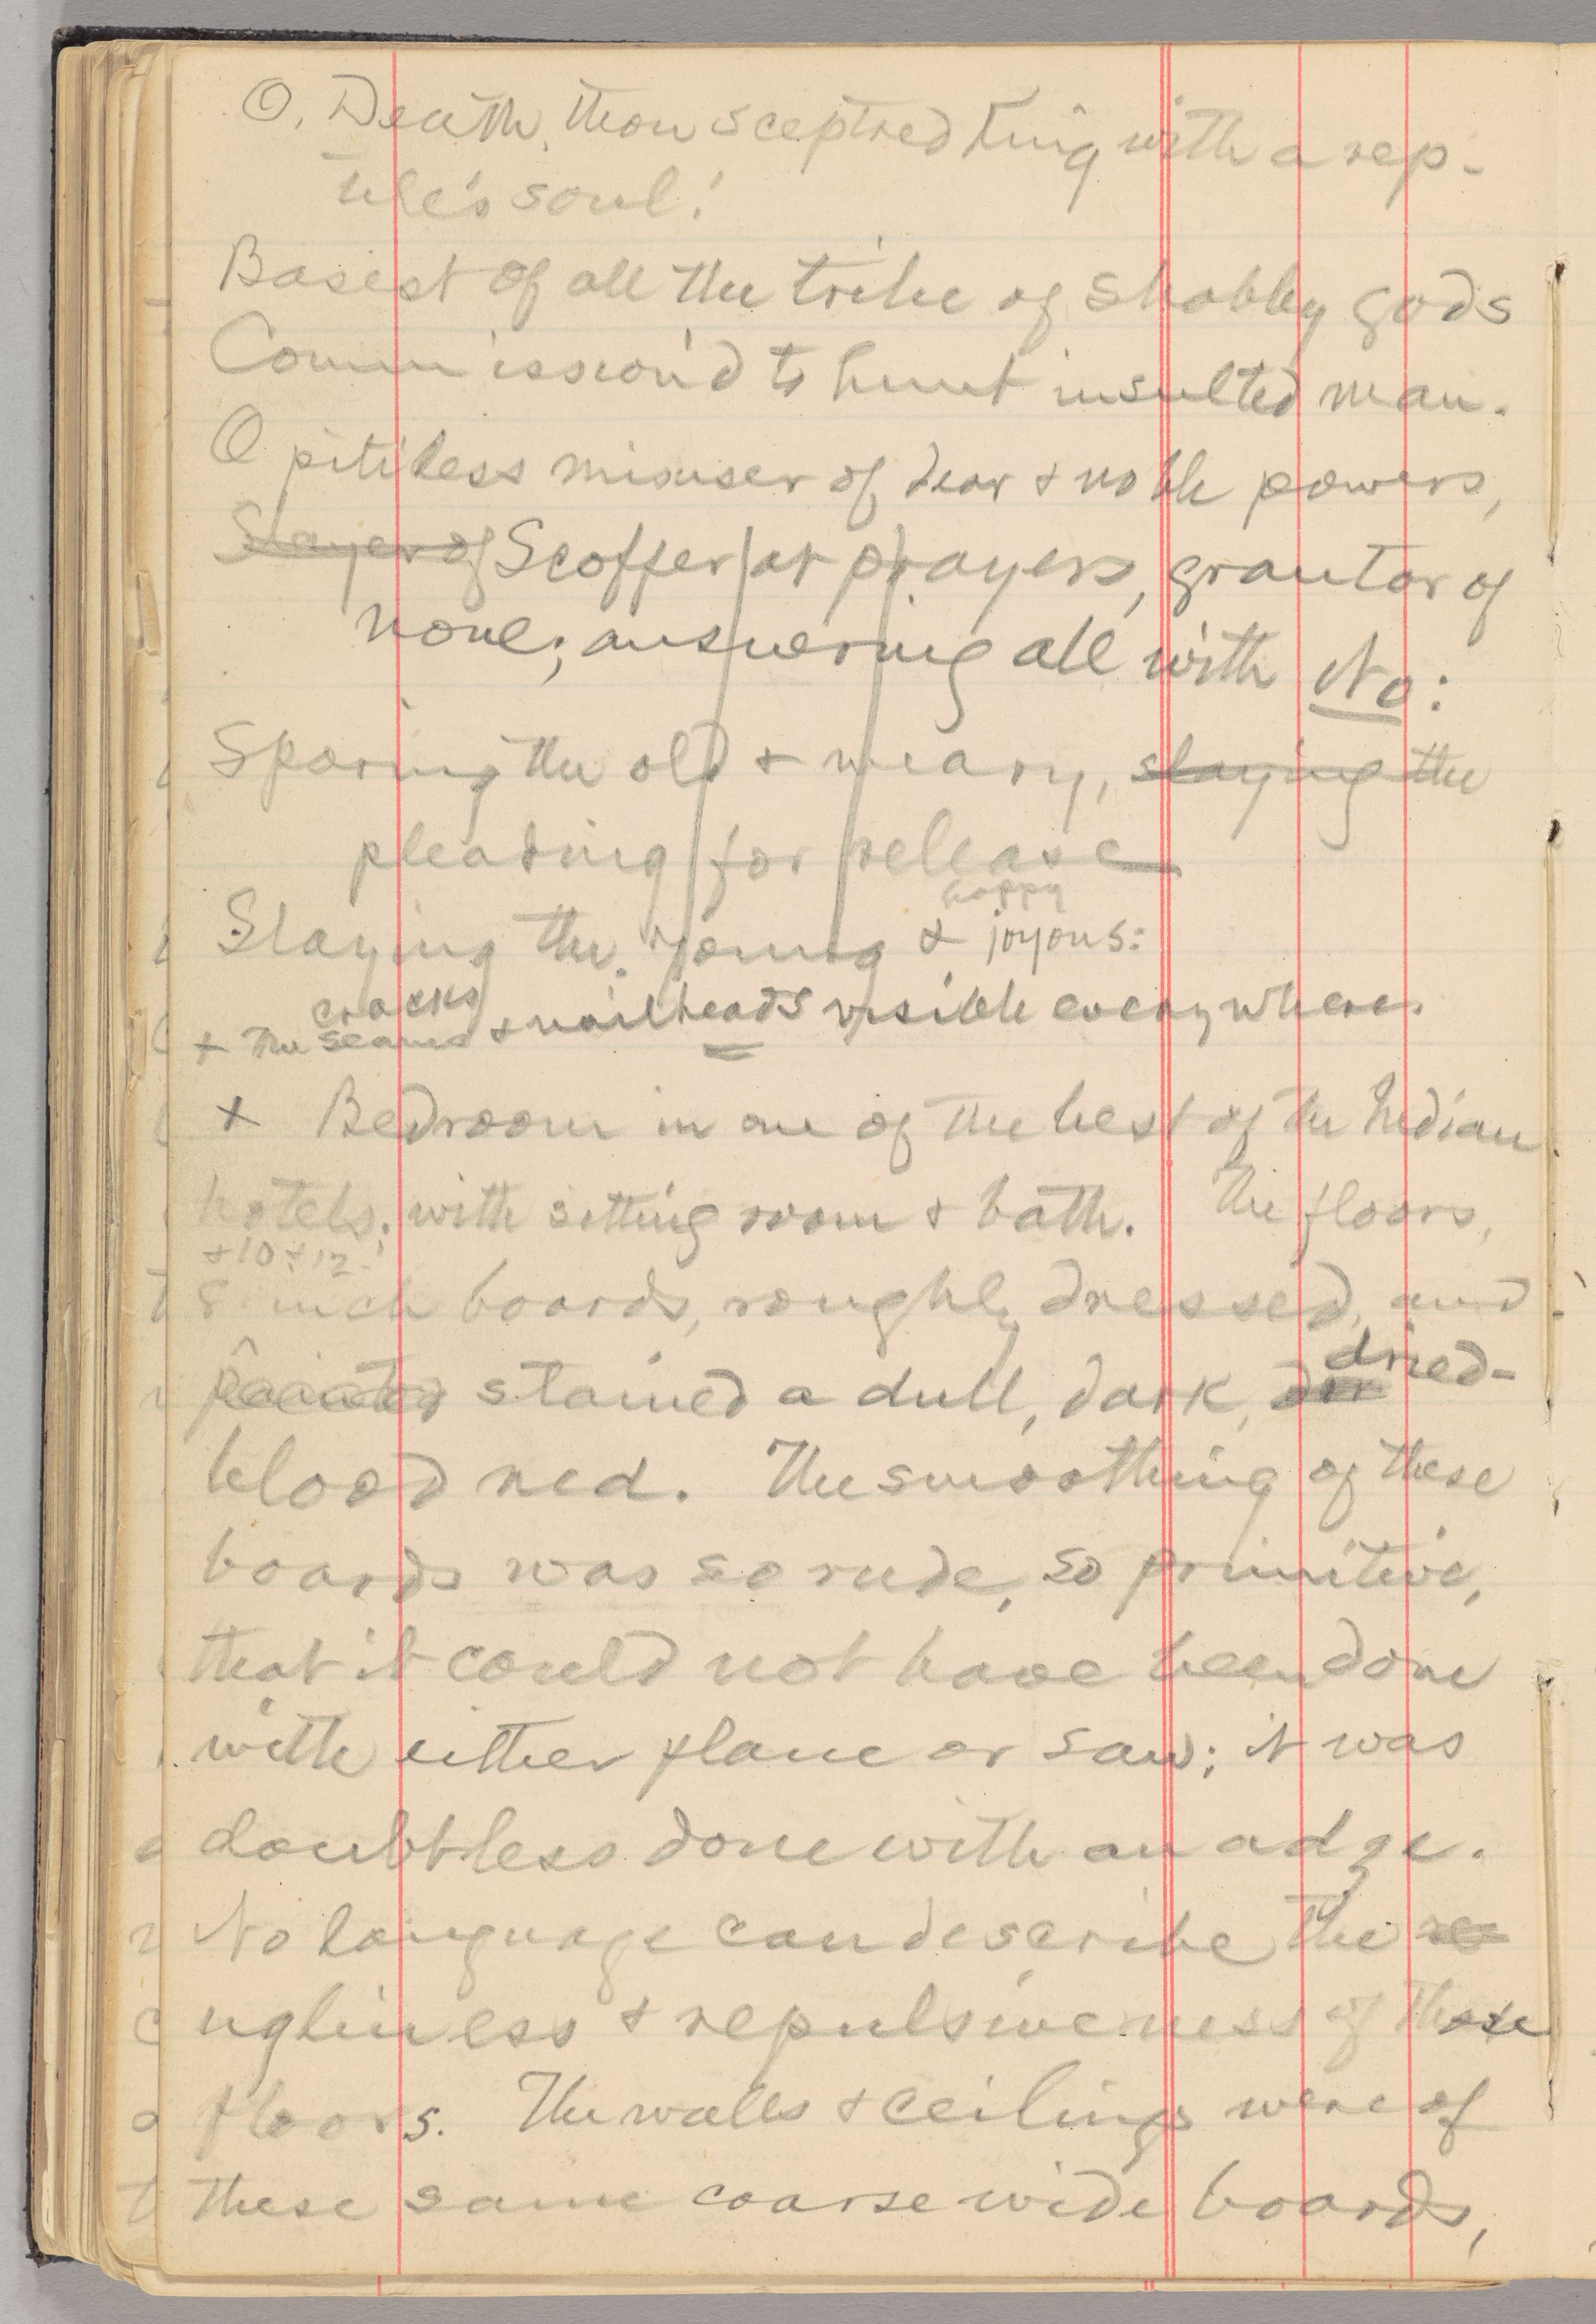 O, Death, thou sceptred King with a rep-
tile's soul!
Basest of all the tribe of shabby gods
Commission'd to hunt insulted man.
O pitiless misuser of dear & noble powers,
Slayer of Scoffer at prayers, grantor of
none; answering all with No:
Sparing the old & weary, slaying the
pleading for release
happy
Slaying the young & joyous:
cracks
+ The seams & nailheads visible everywhere.
+ Bedroom in one of the best of the Indian
hotels; with sitting room & bath. The floors,
& 10 & 12
8 inch boards, roughly dressed, and
dried-
painted stained a dull, dark,
blood red. The smoothing of these
boards was so rude, so primitive,
that it could not have been done
with either plane or saw; it was
doubtless done with an adze.
No language can describe the re
ugliness & repulsiveness of those
floors. The walls & ceilings were of
these same coarse wide boards,